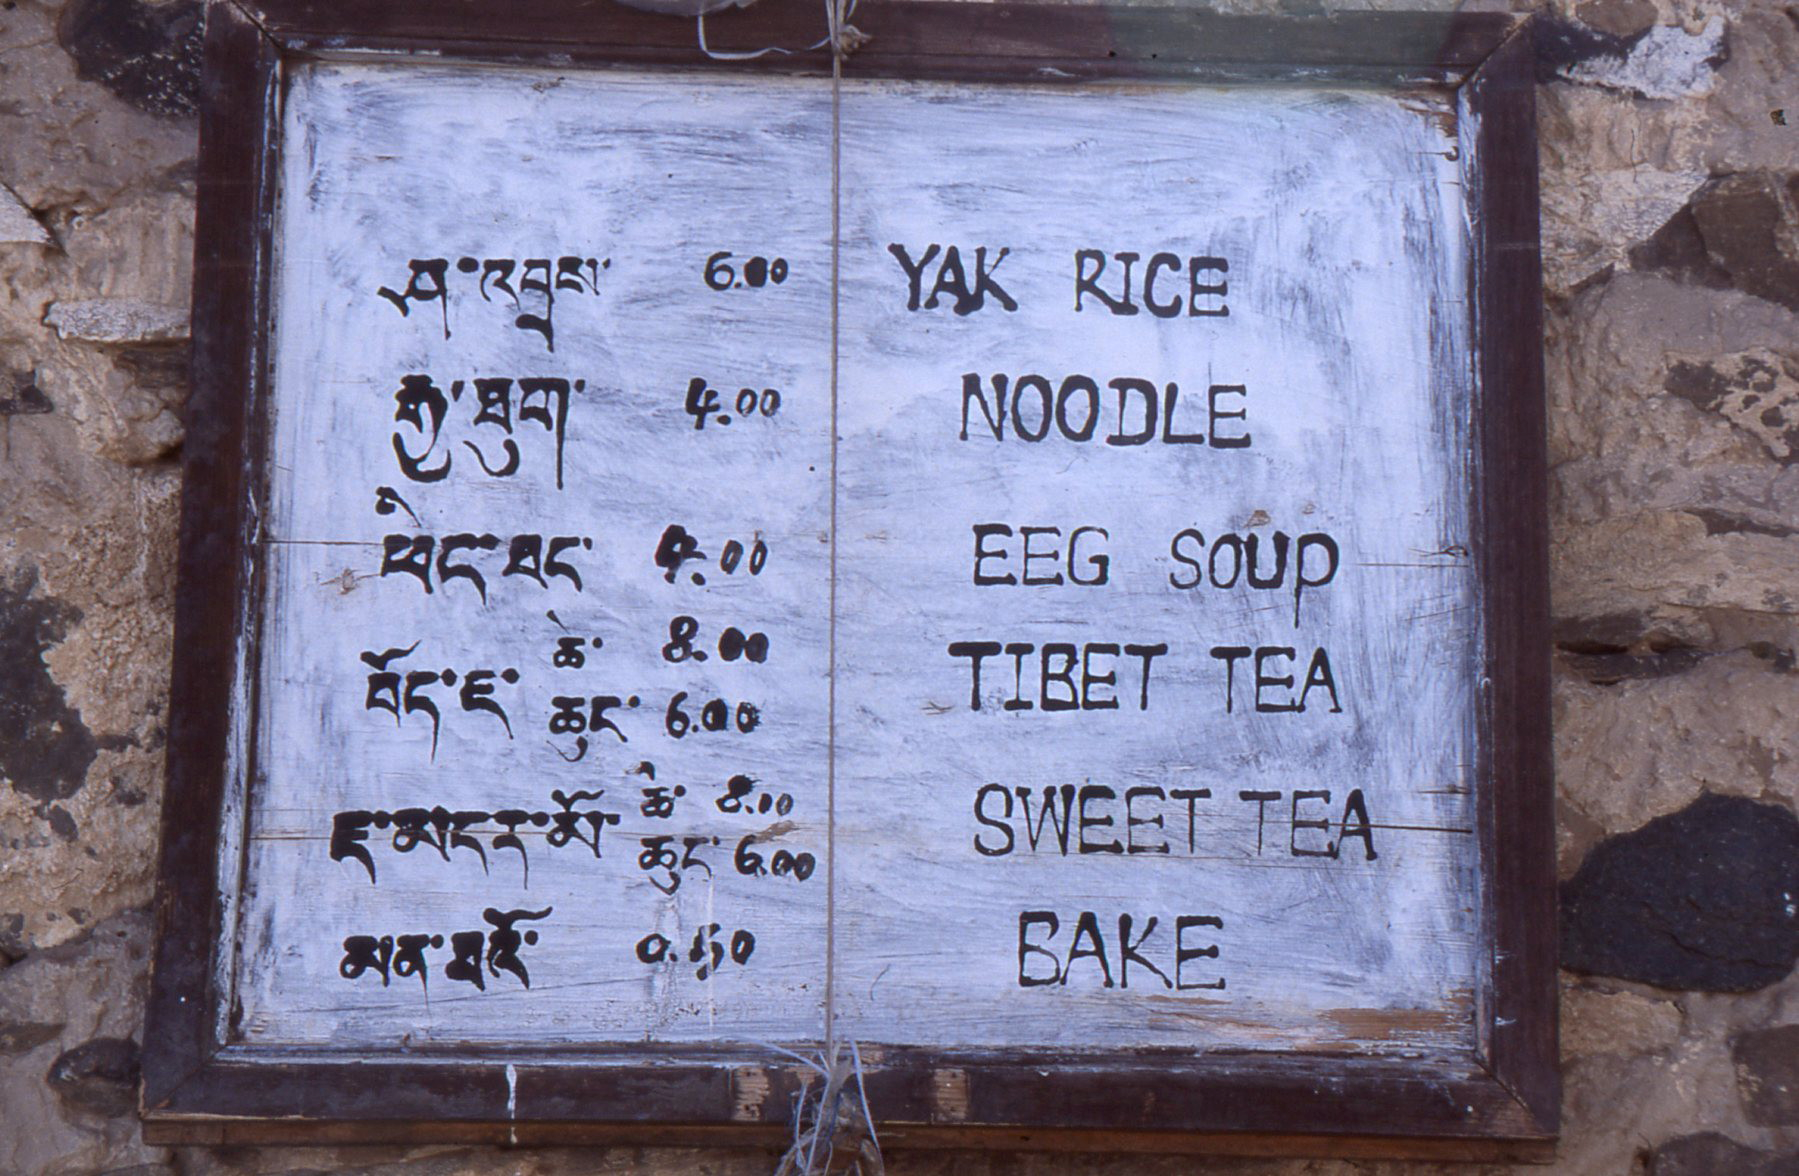 ཤ་འབྲས་ 6.00 YAK RICE
རྒྱ་ཐུག་ 4.00 NOODLE
ཐང་ 4.00 EEG SOUP
བོད་ཇ་ ཆེ་ 8.00 TIBET TEA
ཆུང་ 6.00
ཇ་མངར་མོ་ ཆེ་ 8.00 SWEET TEA
ཆུང་ 6.00
0.50 BAKE